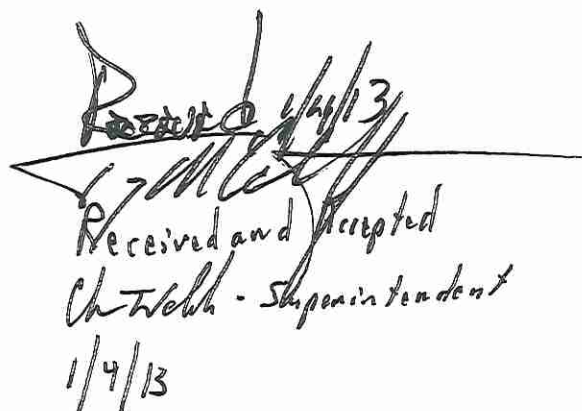 Received 1/4/13
Received and Accepted
- Superintendent
1/4/13